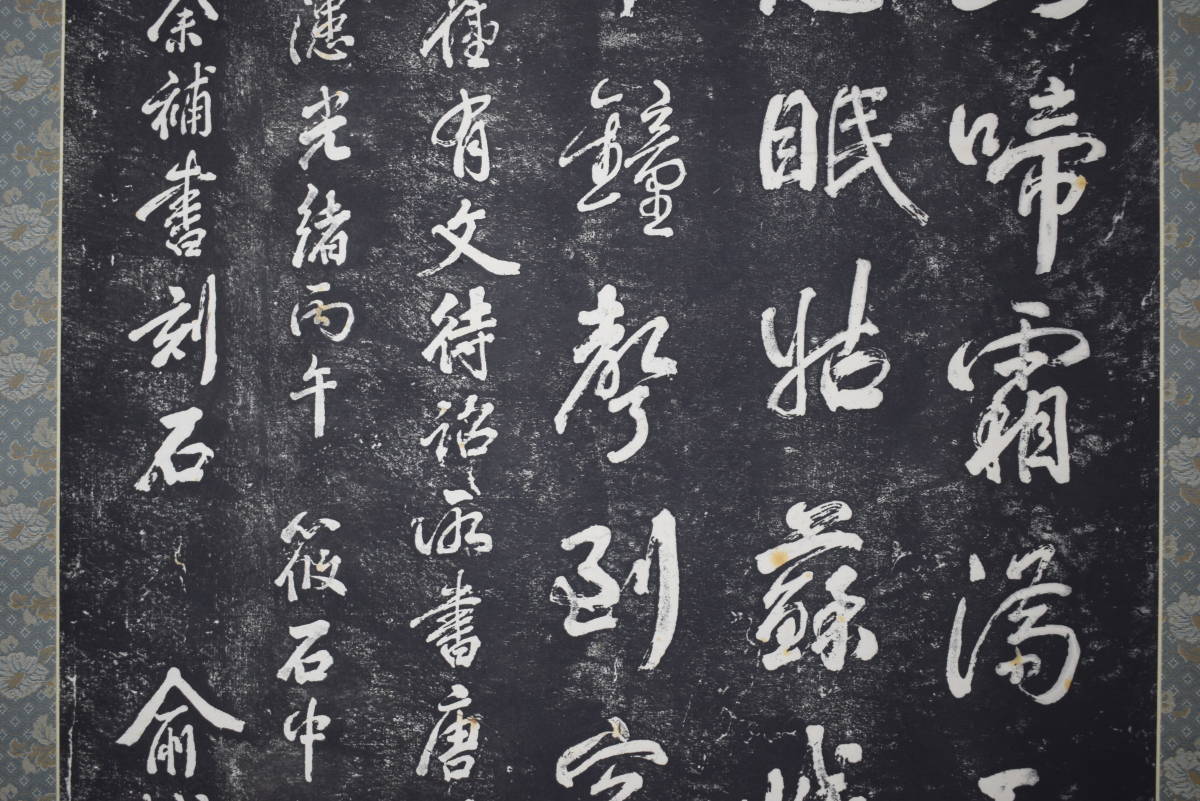 啼霜滿
眠姑蘇城
鐘聲到客
有文待詔所書唐
漶光緒丙午筱石中
余補書刻石俞